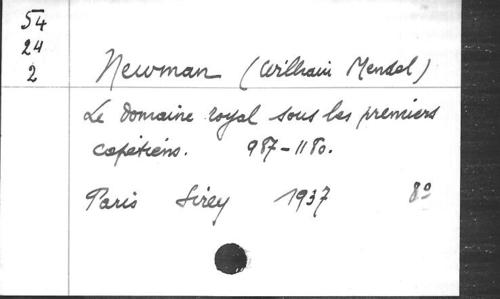 54
24
2
Newman (William Mendel)
Le domaine royal sous les premiers
capétiens. 987-1180.
Paris Sirey 1937 8º